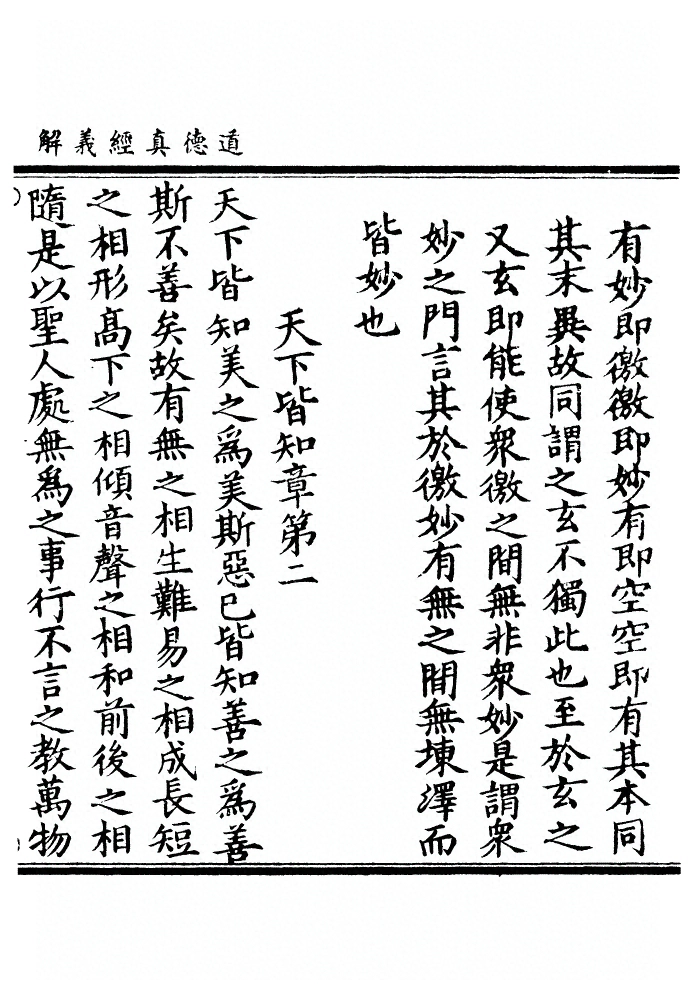 道德真經義解
有妙即徼徼即妙有即空空即有其本同
其末異故同謂之玄不獨此也至於玄之
又玄即能使衆徼之間無非衆妙是謂衆
妙之門言其於徼妙有無之間無揀澤而
皆妙也
天下皆知章第二
天下皆知美之爲美斯惡已皆知善之爲善
斯不善矣故有無之相生難易之相成長短
之相形高下之相傾音聲之相和前後之相
隨是以聖人處無爲之事行不言之教萬物